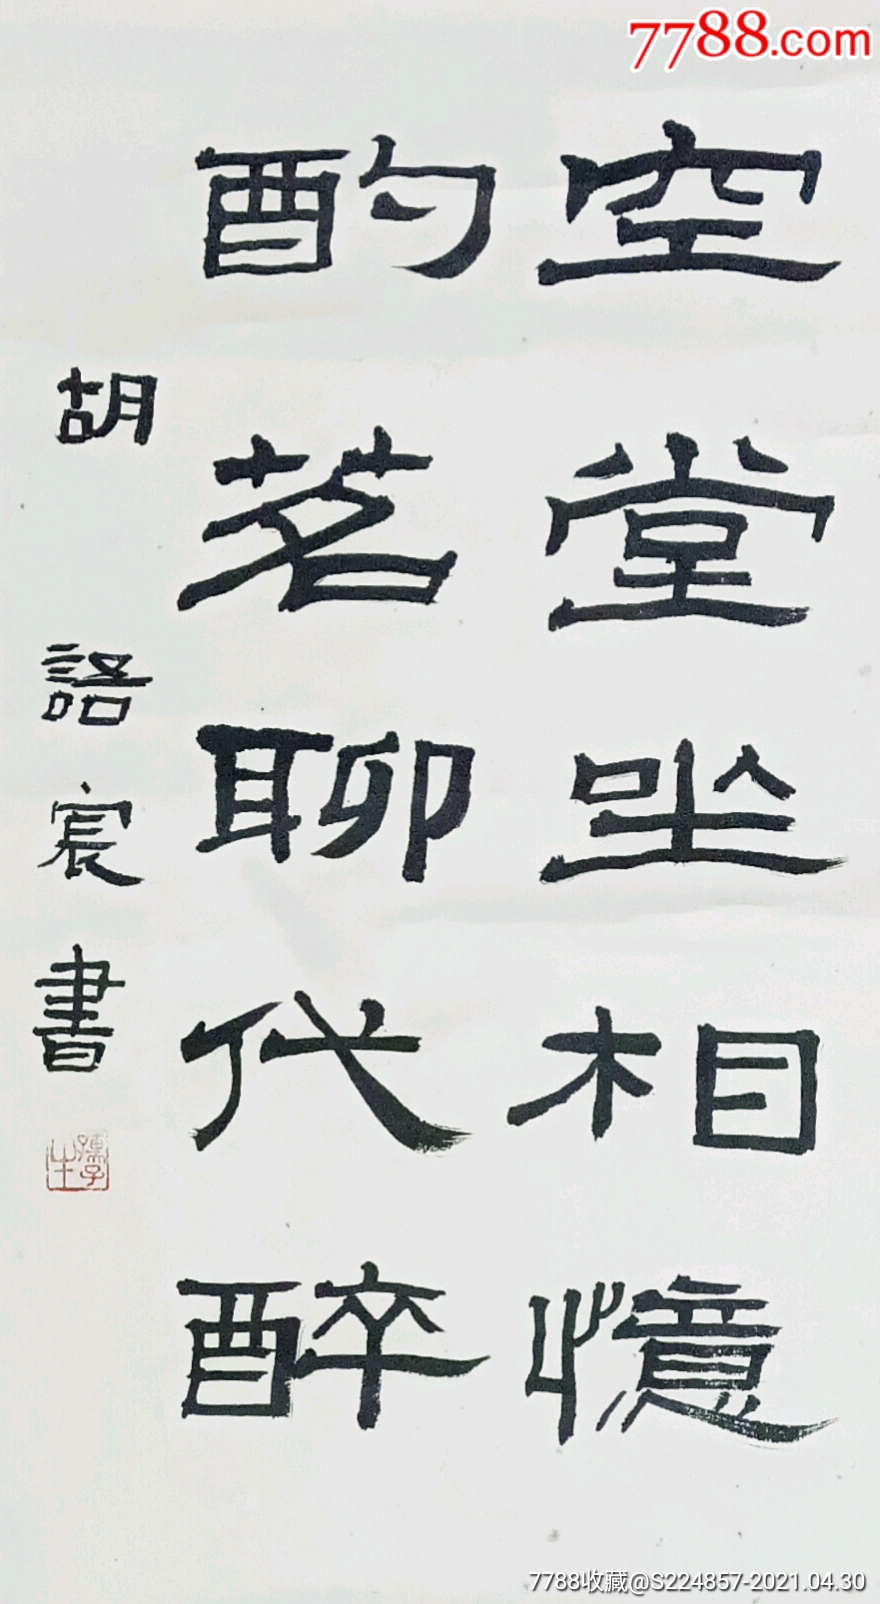 7788.com
空堂坐相憶
酌茗聊代醉
胡語宸書
7788收藏@S224857-2021.04.30